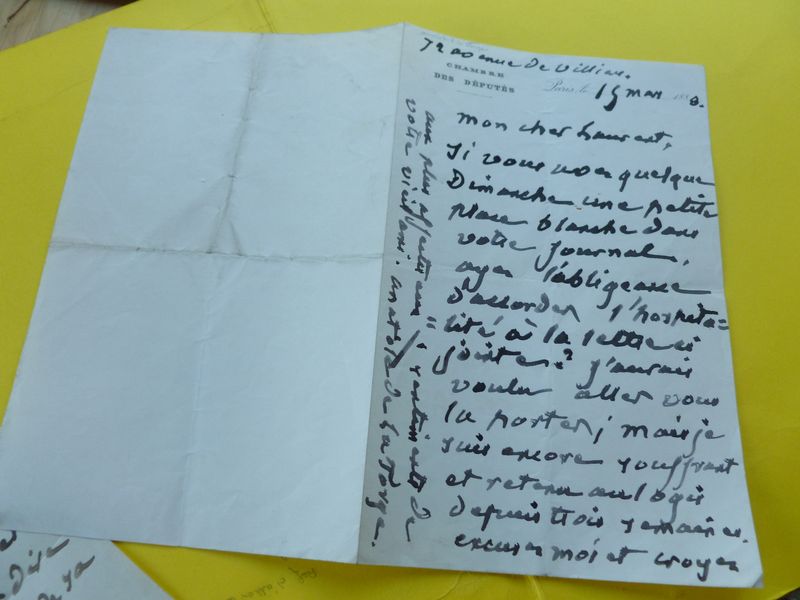 72 avenue de Villiers.
CHAMBRE
DES DÉPUTÉS
Paris, le 15 mars 188
mon cher Laurent,
si vous avez quelque
Dimanche une petite
place blanche dans
votre journal,
ayez l'obligeance
d'accorder l'hospita=
lité à la lettre ci
jointe? j'aurais
voulu aller vous
la porter; mais je
suis encore souffrant
et retenu au logis
depuis trois semaines.
excusez moi et croyez
aux plus affectueux sentiments de
votre vieil ami. anatole de La Forge.